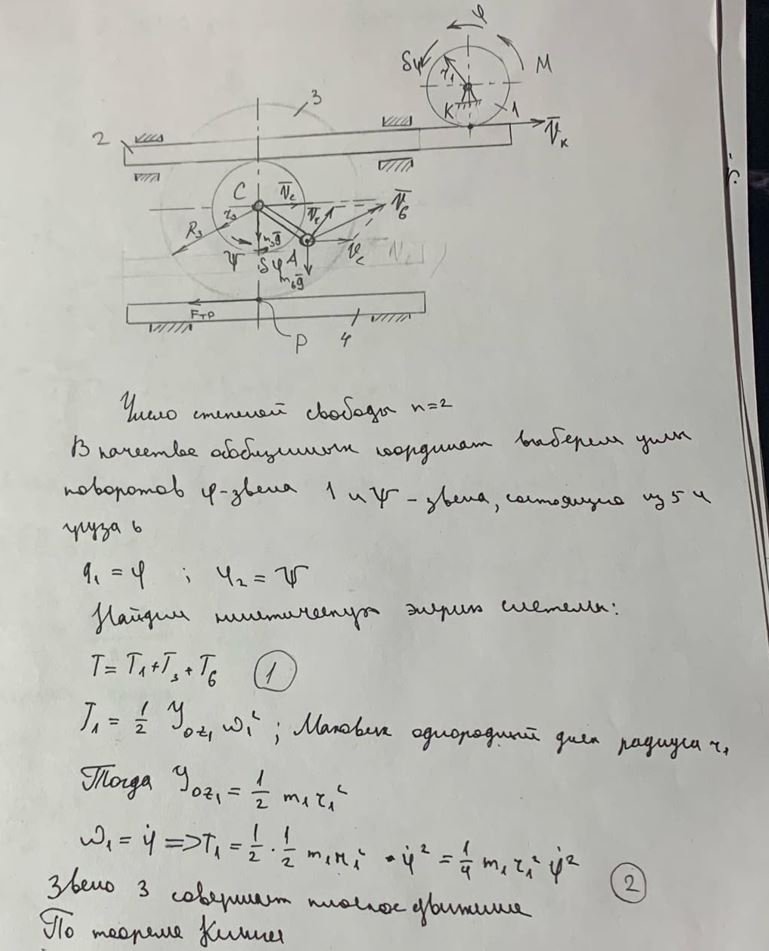 φ
δφ
M
r₁
K
1
V̄ₖ
3
2
C
V̄c
r₃
R₃
V̄r
V̄₆
Vc
m₃ḡ
ψ
δψ
A
m₆ḡ
Fтр
P
4
Число степеней свободы n=2
В качестве обобщенных координат выберем углы
поворотов φ-звена 1 и ψ - звена, состоящего из 5 и
груза 6
q₁ = φ ; φ₂ = ψ
Найдем кинетическую энергию системы:
T = T₁ + T₃ + T₆ (1)
T₁ = 1/2 Yoz₁ ω₁² ; Маховик однородный диск радиуса r₁
Тогда Yoz₁ = 1/2 m₁ r₁²
ω₁ = φ̇ => T₁ = 1/2 · 1/2 m₁ r₁² · φ̇² = 1/4 m₁ r₁² φ̇² (2)
Звено 3 совершает плоское движение
По теореме Кёнига